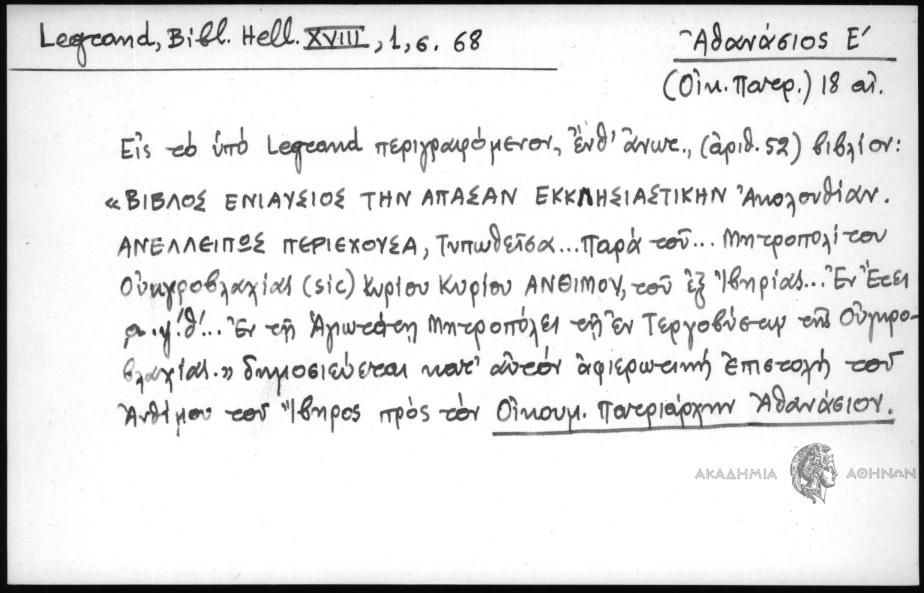 Legrand, Bibl. Hell. XVIII, 1, σ. 68
Ἀθανάσιος Ε'
(Οἰκ. Πατρ.) 18 αἰ.
Εἰς τὸ ὑπὸ Legrand περιγραφόμενον, ἔνθ' ἄνωτ., (ἀριθ. 52) βιβλίον:
«ΒΙΒΛΟΣ ΕΝΙΑΥΣΙΟΣ ΤΗΝ ΑΠΑΣΑΝ ΕΚΚΛΗΣΙΑΣΤΙΚΗΝ Ἀκολουθίαν.
ΑΝΕΛΛΕΙΠΩΣ ΠΕΡΙΕΧΟΥΣΑ, Τυπωθεῖσα... Παρὰ τοῦ... Μητροπολίτου
Οὐκγροβλαχίας (sic) Κυρίου Κυρίου ΑΝΘΙΜΟΥ, τοῦ ἐξ Ἰβηρίας... Ἐν Ἔτει
... Ἐν τῇ Ἁγιωτάτῃ Μητροπόλει τῇ ἐν Τεργοβύστῳ τῆς Οὐγκρο-
βλαχίας.» δημοσιεύεται κατ' αὐτὸν ἀφιερωτικὴ ἐπιστολὴ τοῦ
Ἀνθίμου τοῦ Ἴβηρος πρὸς τὸν Οἰκουμ. Πατριάρχην Ἀθανάσιον.
ΑΚΑΔΗΜΙΑ ΑΘΗΝΩΝ